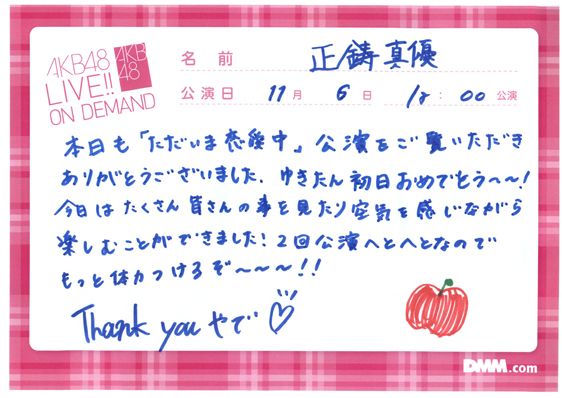 AKB48
LIVE!!
ON DEMAND
AKB
48
名前 正鋳真優
公演日 11月 6日 18:00 公演
本日も「ただいま恋愛中」公演をご覧いただき
ありがとうございました、ゆきたん初日おめでとう〜〜!
今日はたくさん皆さんの事を見たり空気を感じながら
楽しむことができました!2回公演へとへとなので
もっと体力つけるぞ〜〜〜!!
Thank you やで♡
DMM.com